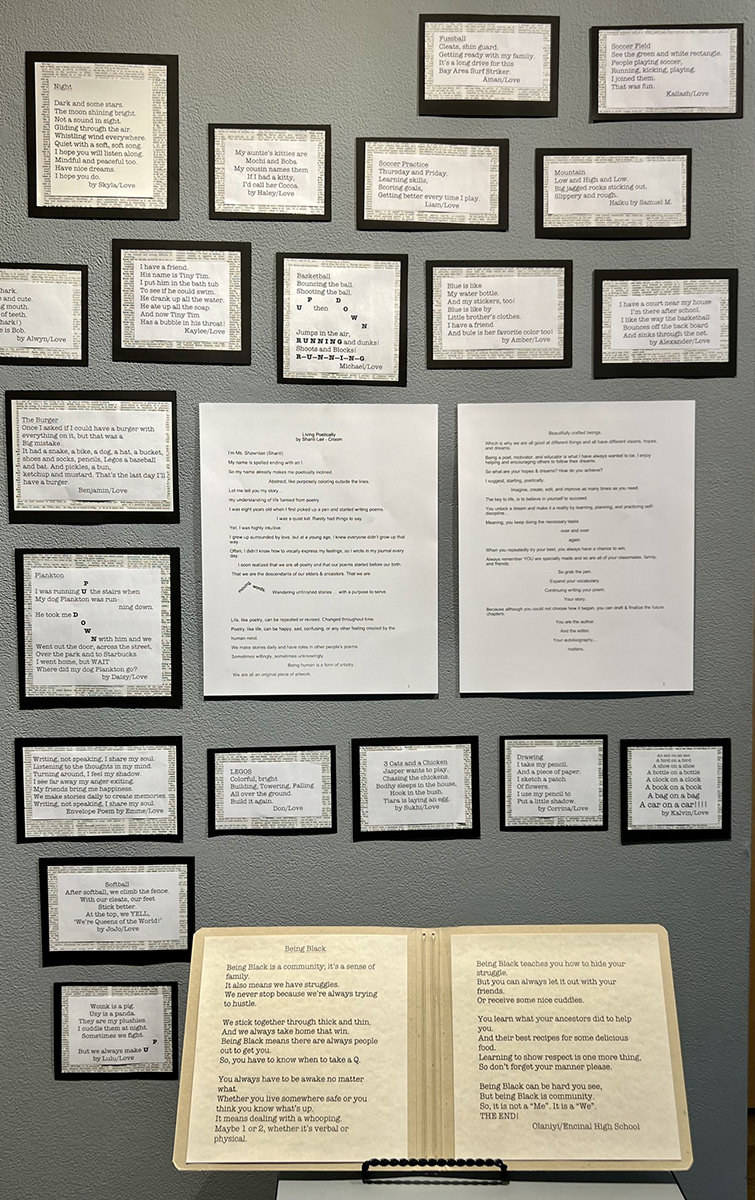 Fussball
Cleats, shin guard.
Getting ready with my family.
It's a long drive for this
Bay Area Surf Striker.
Aman/Love
Soccer Field
See the green and white rectangle.
People playing soccer,
Running, kicking, playing.
I joined them.
That was fun.
Kailash/Love
Night
Dark and some stars.
The moon shining bright.
Not a sound in sight.
Gliding through the air.
Whistling wind everywhere.
Quiet with a soft, soft song.
I hope you will listen along.
Mindful and peaceful too.
Have nice dreams.
I hope you do.
by Skyla/Love
My auntie's kitties are
Mochi and Boba
My cousin names them
If I had a kitty,
I'd call her Cocoa.
by Haley/Love
Soccer Practice
Thursday and Friday.
Learning skills,
Scoring goals,
Getting better every time I play.
Liam/Love
Mountain
Low and High and Low.
Big jagged rocks sticking out.
Slippery and rough.
Haiku by Samuel M.
hark.
e and cute.
g mouth.
of teeth.
hark!)
e is Bob.
by Alwyn/Love
I have a friend.
His name is Tiny Tim.
I put him in the bath tub
To see if he could swim.
He drank up all the water.
He ate up all the soap.
And now Tiny Tim
Has a bubble in his throat!
Kaylee/Love
Basketball
Bouncing the ball.
Shooting the ball.
U P then D O W N
Jumps in the air,
RUNNING and dunks!
Shoots and Blocks!
R-U-N-N-I-N-G
Michael/Love
Blue is like
My water bottle.
And my stickers, too!
Blue is like by
Little brother's clothes.
I have a friend
And bule is her favorite color too!
by Amber/Love
I have a court near my house
I'm there after school.
I like the way the basketball
Bounces off the back board
And sinks through the net.
by Alexander/Love
The Burger
Once I asked if I could have a burger with
everything on it, but that was a
Big mistake.
It had a snake, a bike, a dog, a hat, a bucket,
shoes and socks, pencils, Legos a baseball
and bat. And pickles, a bun,
ketchup and mustard. That's the last day I'll
have a burger.
Benjamin/Love
Living Poetically
by Shanti Lair - Croom
I'm Ms. Shawntae (Shanti)
My name is spelled ending with an I
So my name already makes me poetically inclined.
Abstract, like purposely coloring outside the lines.
Let me tell you my story...
my understanding of life formed from poetry.
I was eight years old when I first picked up a pen and started writing poems.
I was a quiet kid. Rarely had things to say.
Yet, I was highly intuitive.
I grew up surrounded by love, but at a young age, I knew everyone didn't grow up that
way.
Often, I didn't know how to vocally express my feelings, so I wrote in my journal every
day.
I soon realized that we are all poetry and that our poems started before our birth.
That we are the descendants of our elders & ancestors. That we are
moving words
Wandering unfinished stories ... with a purpose to serve
Life, like poetry, can be repeated or revised. Changed throughout time.
Poetry, like life, can be happy, sad, confusing, or any other feeling created by the
human mind.
We make stories daily and have roles in other people's poems.
Sometimes willingly, sometimes unknowingly.
Being human is a form of artistry.
We are all an original piece of artwork.
1
Beautifully crafted beings.
Which is why we are all good at different things and all have different visions, hopes,
and dreams.
Being a poet, motivator, and educator is what I have always wanted to be. I enjoy
helping and encouraging others to follow their dreams.
So what are your hopes & dreams? How do you achieve?
I suggest, starting, poetically.
Imagine, create, edit, and improve as many times as you need.
The key to life, is to believe in yourself to succeed.
You unlock a dream and make it a reality by learning, planning, and practicing self-
discipline...
Meaning, you keep doing the necessary tasks
over and over
again.
When you repeatedly try your best, you always have a chance to win.
Always remember YOU are specially made and so are all of your classmates, family,
and friends.
So grab the pen.
Expand your vocabulary.
Continue writing your poem.
Your story.
Because although you could not choose how it began, you can draft & finalize the future
chapters.
You are the author.
And the editor.
Your autobiography...
matters.
Plankton
I was running UP the stairs when
My dog Plankton was run-
ning down.
He took me D
O
W
N with him and we
Went out the door, across the street,
Over the park and to Starbucks.
I went home, but WAIT
Where did my dog Plankton go?
by Daisy/Love
Writing, not speaking, I share my soul.
Listening to the thoughts in my mind.
Turning around, I feel my shadow.
I see far away my anger exiting.
My friends bring me happiness.
We make stories daily to create memories.
Writing, not speaking, I share my soul.
Envelope Poem by Emme/Love
LEGOS
Colorful, bright
Building, Towering, Falling
All over the ground.
Build it again.
Don/Love
3 Cats and a Chicken
Jasper wants to play,
Chasing the chickens.
Bodhy sleeps in the house,
Hook in the bush.
Tiara is laying an egg.
by Sukhi/Love
Drawing
I take my pencil.
And a piece of paper.
I sketch a patch
Of flowers.
I use my pencil to
Put a little shadow.
by Corrina/Love
An ant on an ant
A bird on a bird
A shoe on a shoe
A bottle on a bottle
A clock on a clock
A book on a book
A bag on a bag
A car on a car!!!!
by Kalvin/Love
Softball
After softball, we climb the fence.
With our cleats, our feet
Stick better.
At the top, we YELL,
"We're Queens of the World!"
by JoJo/Love
Woink is a pig.
Uzy is a panda.
They are my plushies.
I cuddle them at night.
Sometimes we fight.
But we always make U P.
by Lulu/Love
Being Black
Being Black is a community; it's a sense of
family.
It also means we have struggles.
We never stop because we're always trying
to hustle.
We stick together through thick and thin,
And we always take home that win.
Being Black means there are always people
out to get you.
So, you have to know when to take a Q.
You always have to be awake no matter
what.
Whether you live somewhere safe or you
think you know what's up.
It means dealing with a whooping.
Maybe 1 or 2, whether it's verbal or
physical.
Being Black teaches you how to hide your
struggle.
But you can always let it out with your
friends,
Or receive some nice cuddles.
You learn what your ancestors did to help
you.
And their best recipes for some delicious
food.
Learning to show respect is one more thing,
So don't forget your manner please.
Being Black can be hard you see,
But being Black is community.
So, it is not a "Me". It is a "We".
THE END!
Olaniyi/Encinal High School